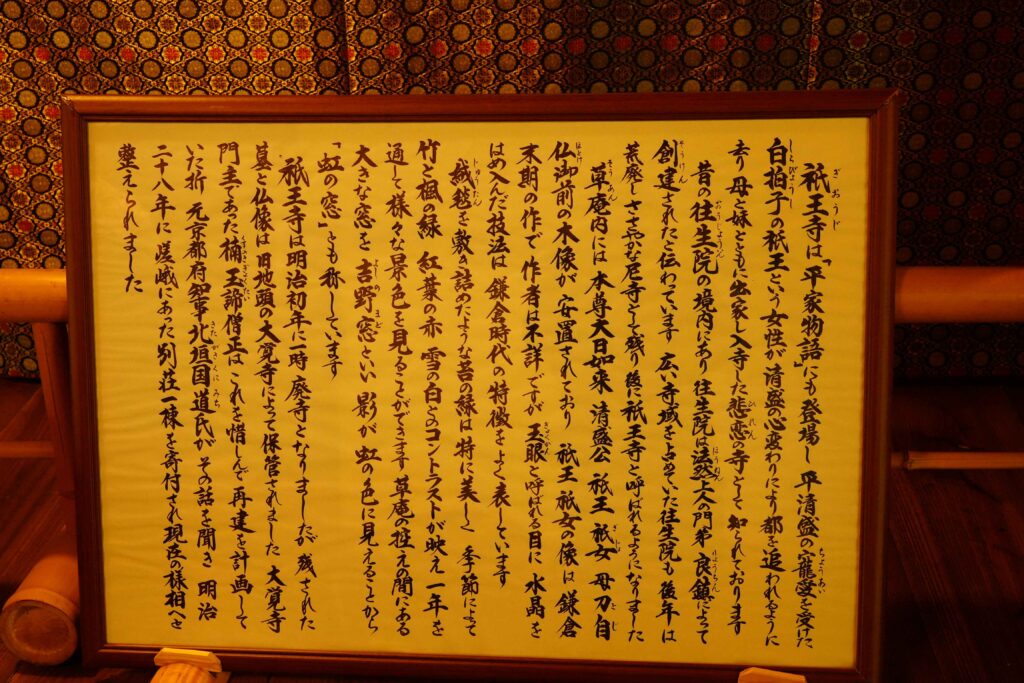 祇王寺は「平家物語」にも登場し 平清盛の寵愛を受けた
白拍子の祇王という女性が清盛の心変わりにより都を追われるように
去り 母と妹とともに出家し入寺した悲恋の寺として 知られております
昔の往生院の境内にあり 往生院は法然上人の門弟 良鎮によって
創建されたと伝わっています 広い寺域を占めていた往生院も 後年は
荒廃し ささやかな尼寺として残り 後に祇王寺と呼ばれるようになりました
草庵内には 本尊大日如来 清盛公 祇王 祇女 母刀自
仏御前の木像が 安置されており 祇王 祇女の像は 鎌倉
末期の作で 作者は不詳ですが 玉眼と呼ばれる目に 水晶を
はめ入んだ技法は 鎌倉時代の特徴をよく表しています
絨毯を敷き詰めたような苔の緑は特に美しく 季節によって
竹と楓の緑 紅葉の赤 雪の白とのコントラストが映え 一年を
通して様々な景色を見ることができます 草庵の控えの間にある
大きな窓を 吉野窓といい 影が 虹の色に見えることから
「虹の窓」とも称しています
祇王寺は明治初年に一時 廃寺となりましたが 残された
墓と仏像は旧地頭の大覚寺によって保管されました 大覚寺
門主であった楠 玉諦僧正はこれを惜しんで再建を計画して
いた折 元京都府知事北垣国道氏が その話を聞き 明治
二十八年に嵯峨にあった別荘一棟を寄付され 現在の様相へと
整えられました